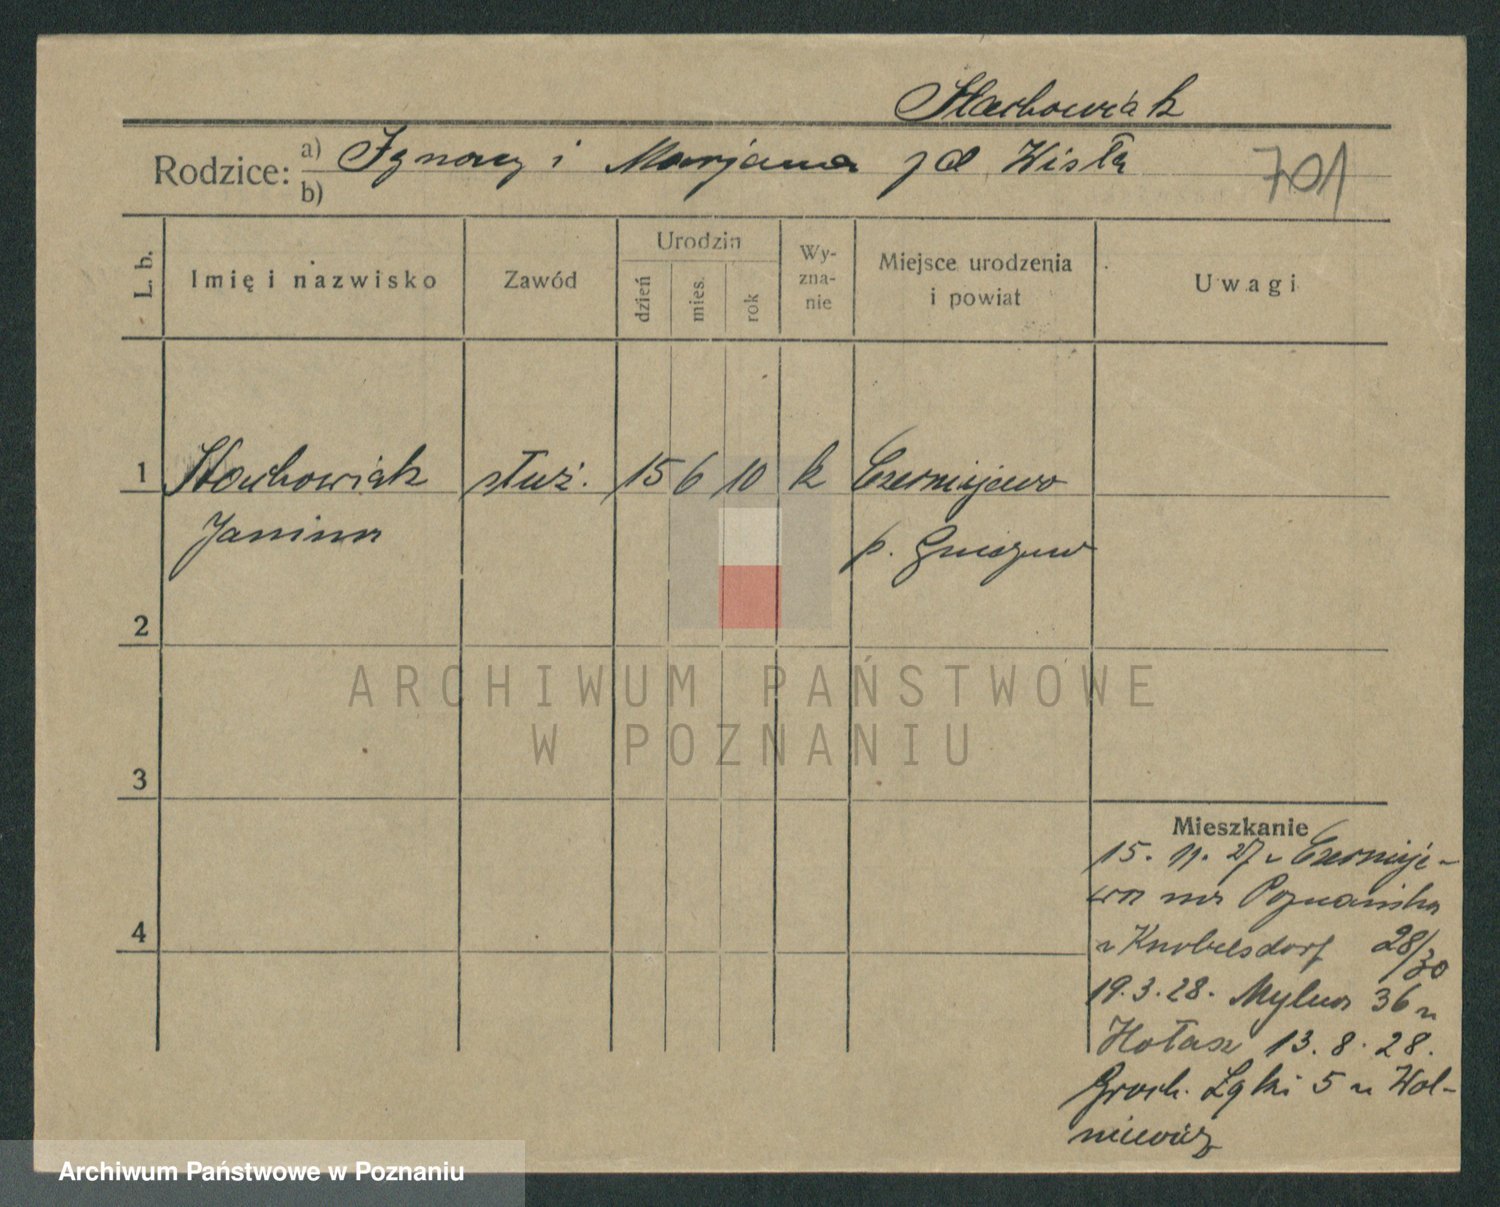 Stachowiak
Rodzice: a) Ignacy i Marjanna z d. Wisła
b)
701
L. b.
Imię i nazwisko
Zawód
Urodzin
dzień
mies.
rok
Wy-
zna-
nie
Miejsce urodzenia
i powiat
Uwagi
1 Stachowiak służ. 15 6 10 k Czerniejewo
Janina p. Gniezno
2
3
4
ARCHIWUM PAŃSTWOWE
W POZNANIU
Mieszkanie
15. 11. 27 z Czernieje-
wa na Poznańska
u Knobelsdorf 28/30
19. 3. 28. Mylna 36 u
Hołasz 13. 8. 28.
Groch. Łąki 5 u Wol-
niewicz
Archiwum Państwowe w Poznaniu